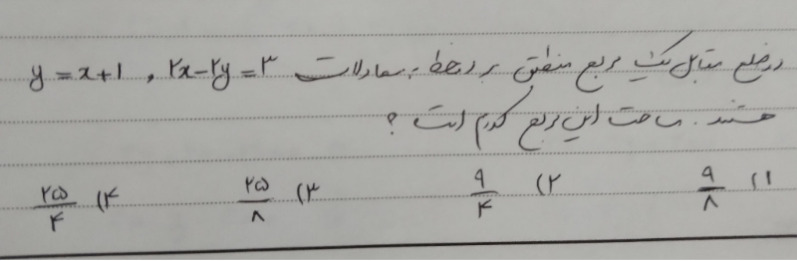 دو ضلع مقابل یک مربع منطبق بر دو خط به معادلات ۲x-۲y=۳ , y=x+۱
هستند. مساحت این مربع کدام است؟
۱) ۹/۸ ۲) ۹/۴ ۳) ۲۵/۸ ۴) ۲۵/۴